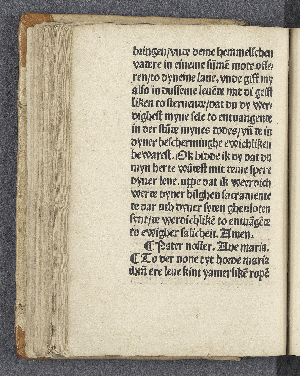 bringen/vnde deme hemmelschen
vadere in eineme sijmē mote offe-
ren/to dyneme laue. vnde gift my
also in dusseme leuēde mit di geist
liken to steruende/dat du dy wer-
dighest myne sele to entuangende
in der stūde mynes dodes/vñ se in
dyner bescherminghe ewichliken
bewarest. Ok bidde ik dy dat du
myn herte wūdest mit deme spere
dyner leue. vppe dat ik werdich
werde dyner hilghen sacramente
te dar vth dyner syden gheuloten
synt/te werdichlikē to entuāgēde
to ewigher salicheit. Amen.
¶ Pater noster. Aue maria.
¶ To der none tyt horde maria
dyn ere leue kint yamerlikē ropē